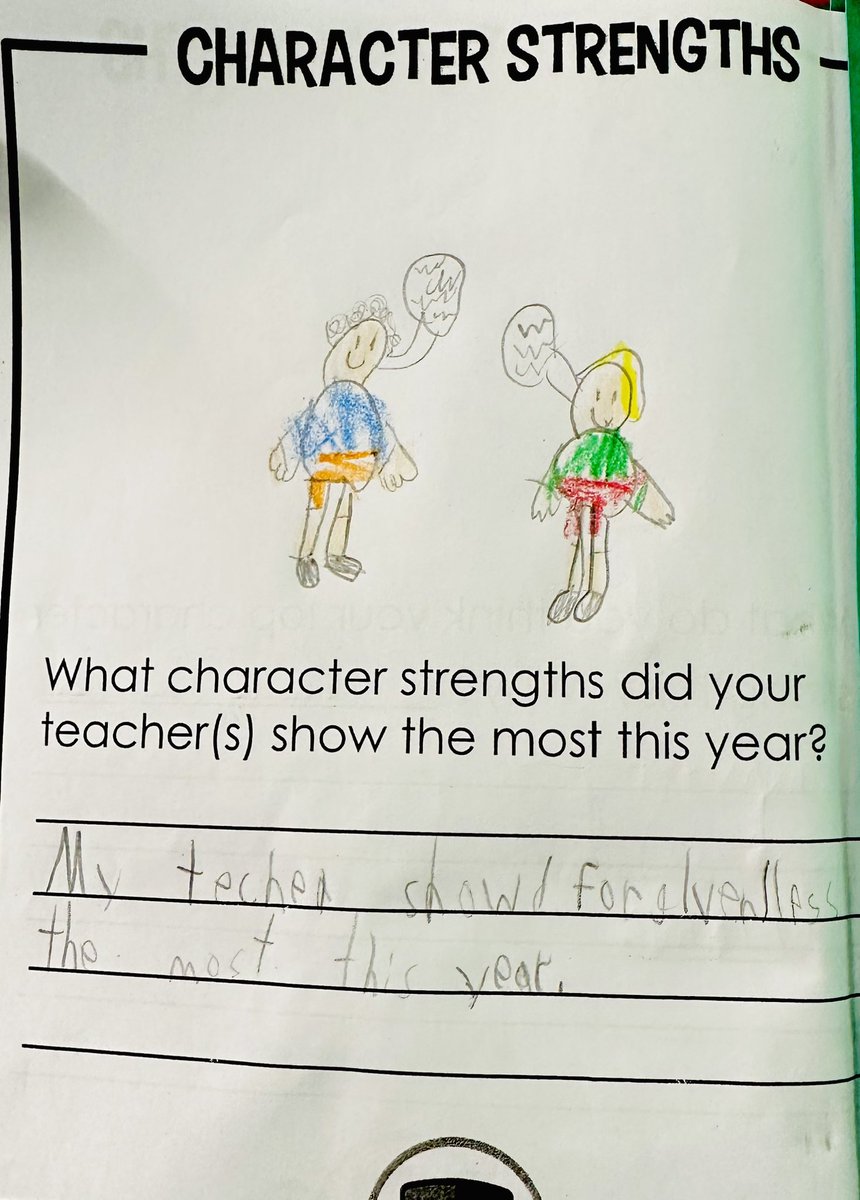 CHARACTER STRENGTHS
What character strengths did your
teacher(s) show the most this year?
My techer showd forgivenless
the most this year.